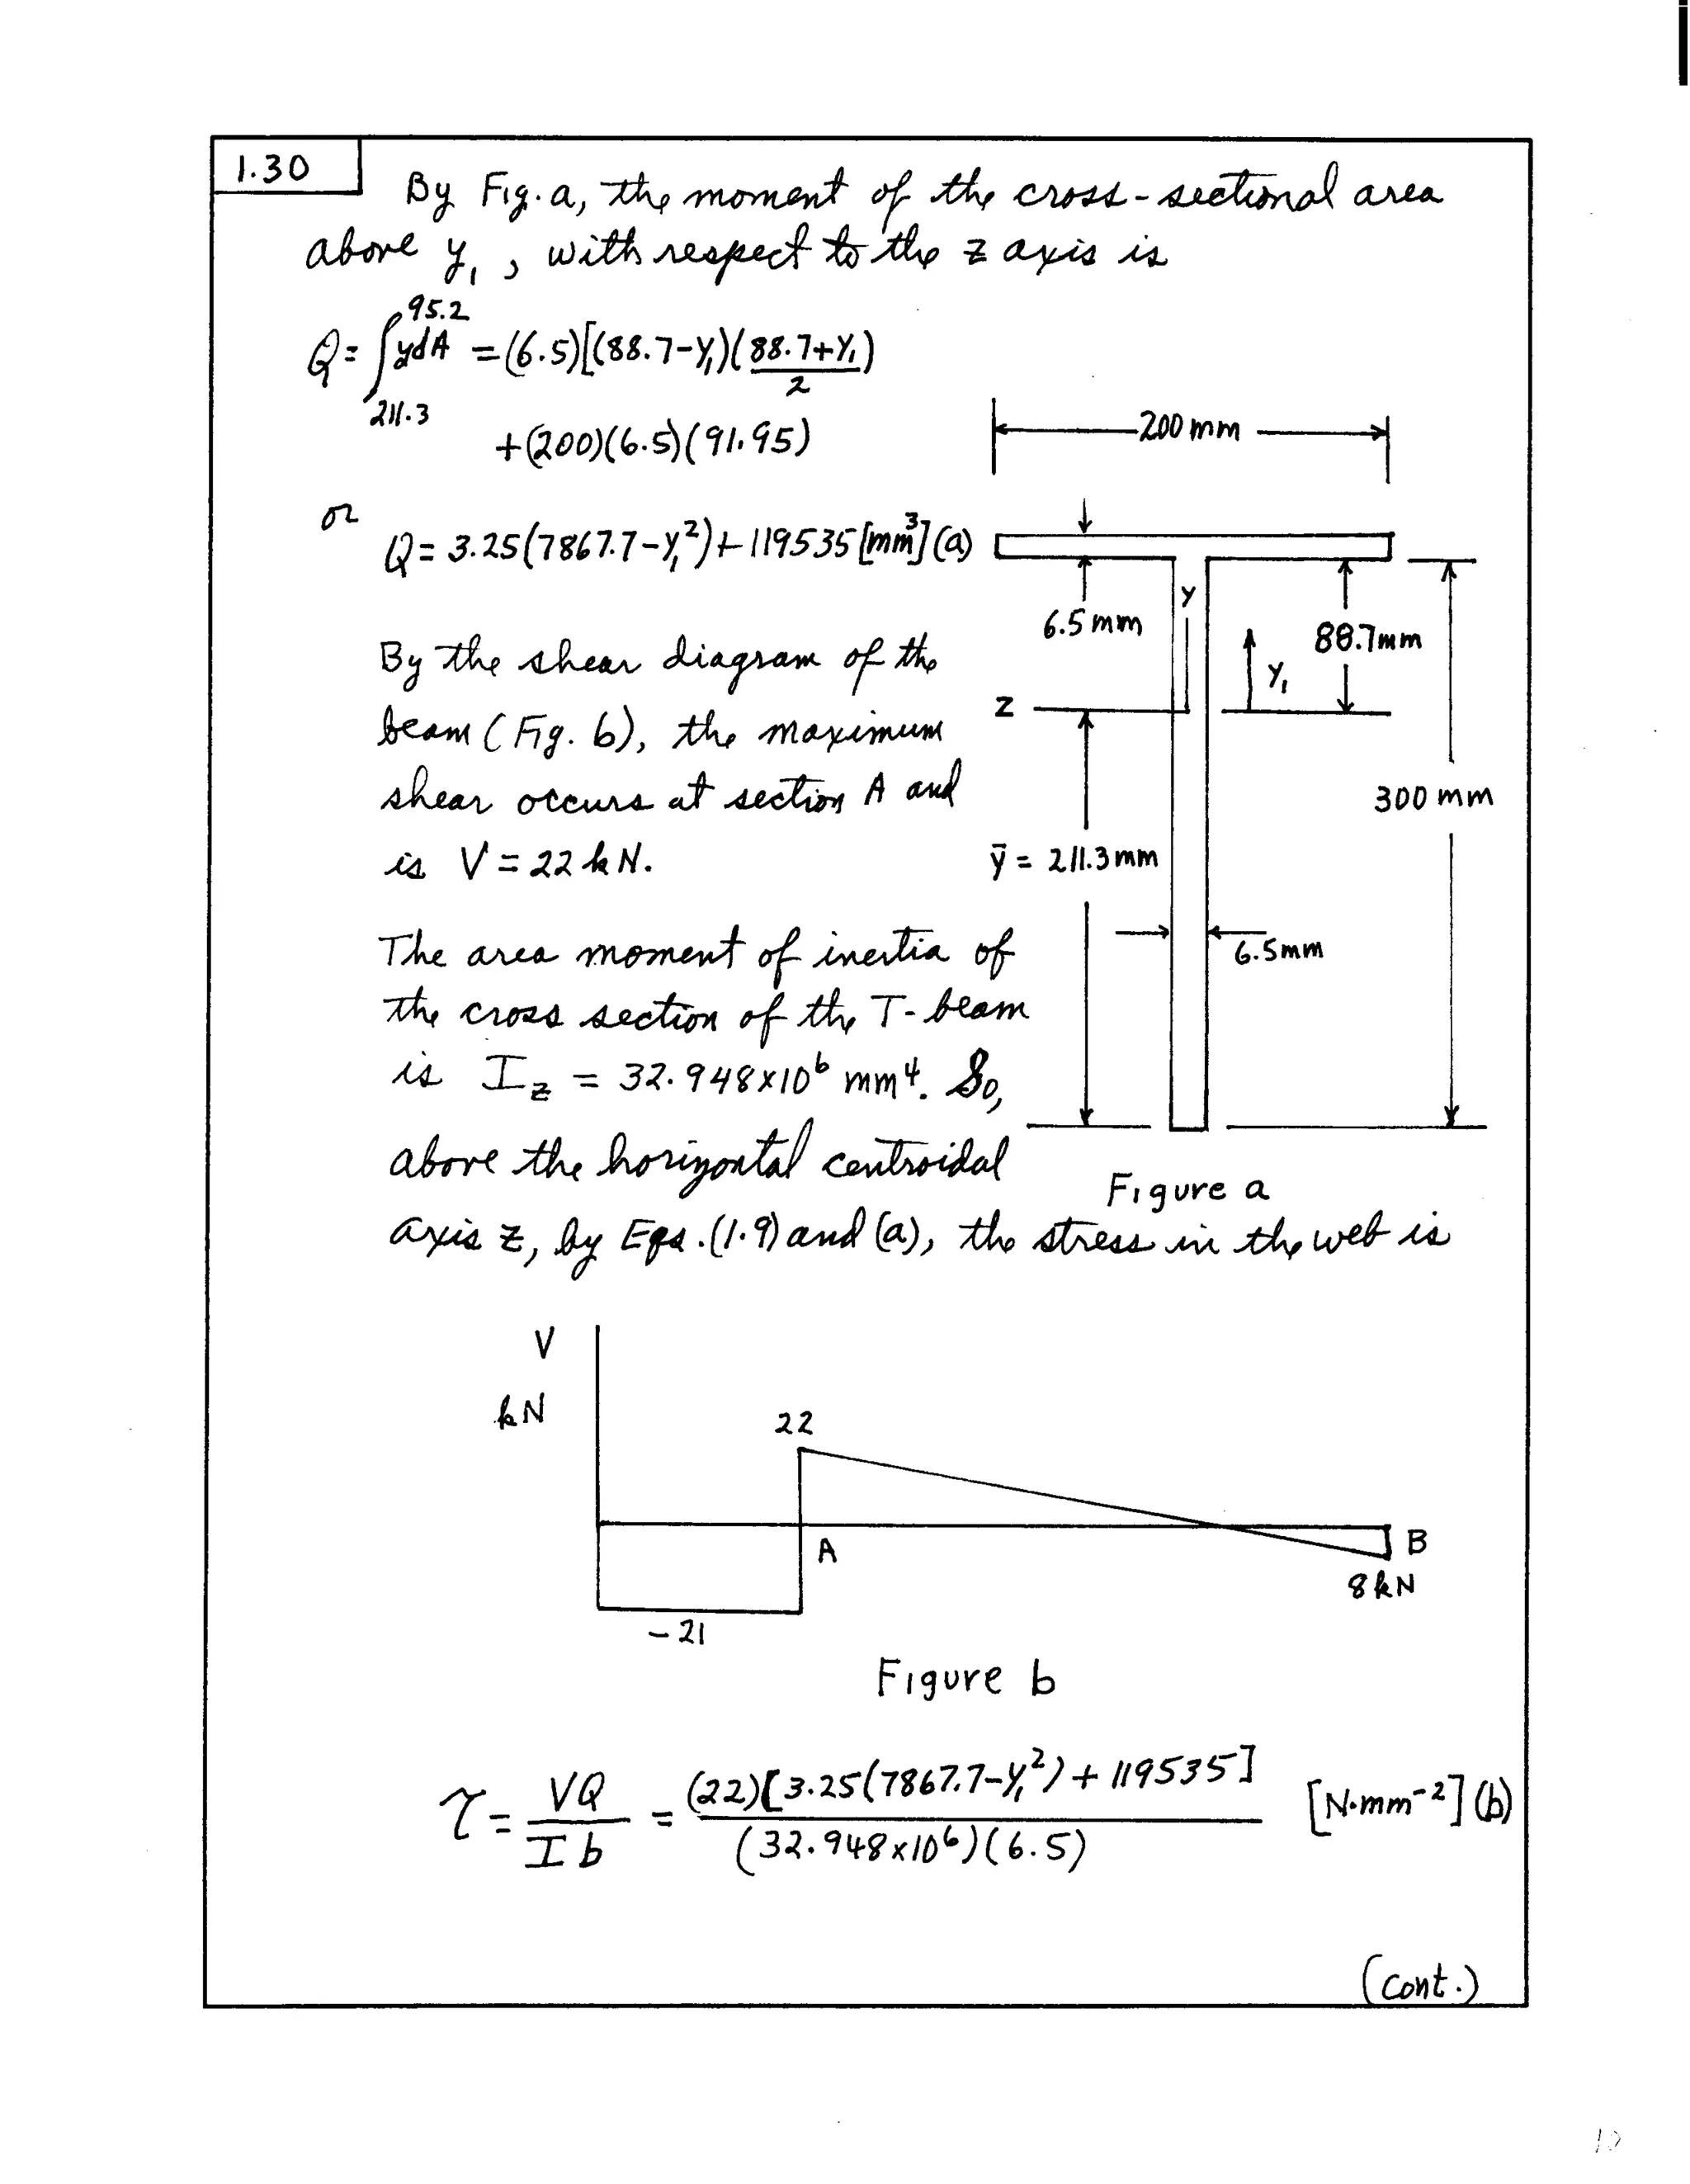 1.30
By Fig. a, the moment of the cross-sectional area
above y₁, with respect to the z axis is
Q = ∫_{211.3}^{95.2} ydA = (6.5)[(88.7-y₁)((88.7+y₁)/2)
+(200)(6.5)(91.95)
or
Q = 3.25(7867.7-y₁²)+119535 [mm³] (a)
By the shear diagram of the
beam (Fig. b), the maximum
shear occurs at section A and
is V = 22 kN.
The area moment of inertia of
the cross section of the T-beam
is I_z = 32.948x10⁶ mm⁴. So,
above the horizontal centroidal
axis z, by Eqs. (1.9) and (a), the stress in the web is
200 mm
6.5 mm
y
88.7mm
y₁
z
300 mm
ȳ = 211.3mm
6.5mm
Figure a
V
kN
22
A
B
8 kN
-21
Figure b
τ = VQ/Ib = (22)[3.25(7867.7-y₁²) + 119535]/(32.948x10⁶)(6.5) [N·mm⁻²] (b)
(cont.)